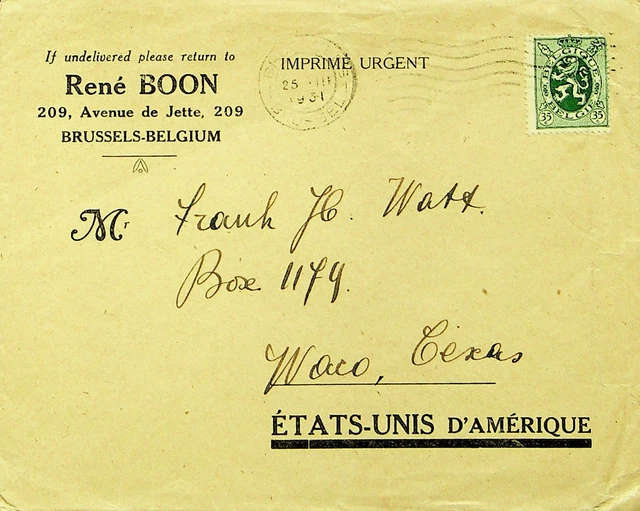 If undelivered please return to
René BOON
209, Avenue de Jette, 209
BRUSSELS-BELGIUM
IMPRIMÉ URGENT
25 III
1931
BELGIQUE
BELGIE
35 35
Mr Frank H. Watt.
Box 1179.
Waco, Texas
ÉTATS-UNIS D'AMÉRIQUE